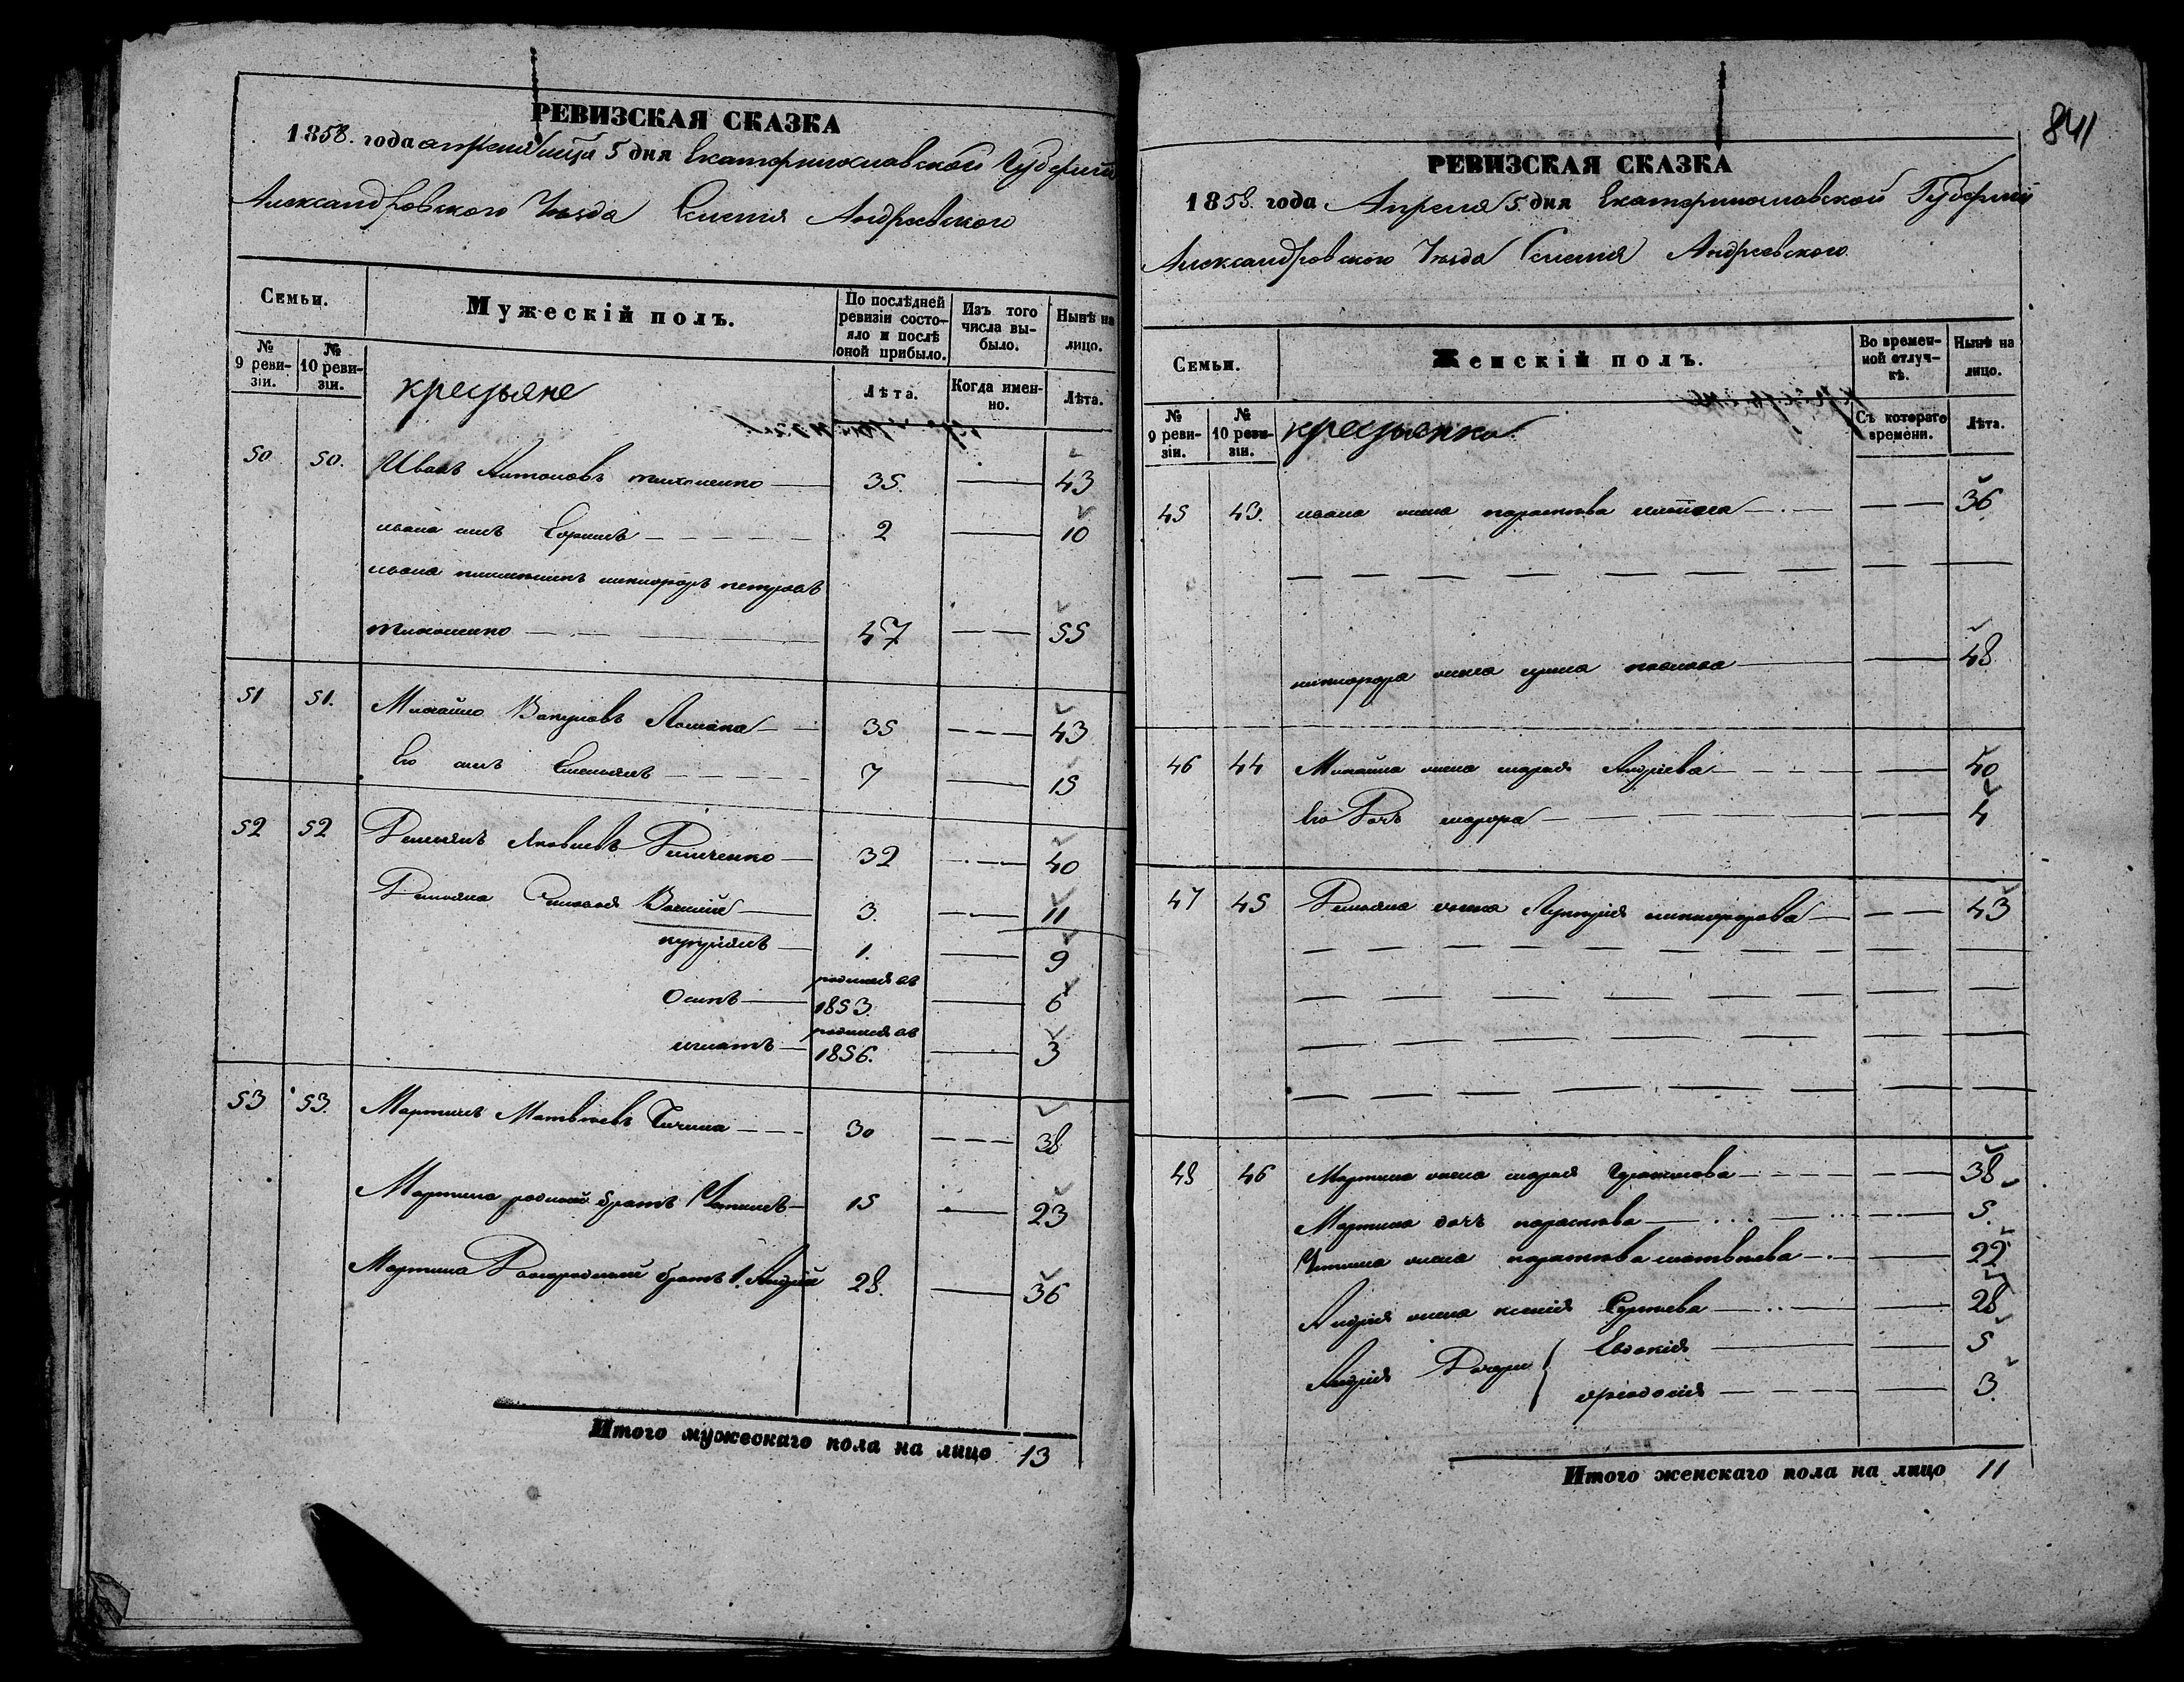 841
РЕВИЗСКАЯ СКАЗКА
1858. года апреля месяца 5 дня Екатеринославской Губернии
Александровского Уезда Селения Андреевского
Семьи.
Мужескій полъ.
По послѣдней ревизіи состояло и послѣ оной прибыло.
Изъ того числа выбыло.
Нынѣ на лицо.
№ 9 ревизіи.
№ 10 ревизіи.
крестьяне
Лѣта.
Когда именно.
Лѣта.
50 50. Иванъ Антоновъ Тихоненко 35. 43
ивана сынъ 2 10
ивана племянникъ никифоръ петровъ
47 55
51 51. Михайло Вакуловъ 35 43
Его сынъ Емельянъ 7 15
52 52 Демьянъ Яковлевъ Демченко 32 40
Демьяна Сыновья Василий 3. 11
1. 9
Осипъ родился въ 1853. 6
игнатъ родился въ 1856. 3
53 53. Мартынъ Матвѣевъ 30 38
Мартына родной братъ 15 23
Мартына братъ 1. Андрей 28. 36
Итого мужескаго пола на лицо 13
РЕВИЗСКАЯ СКАЗКА
1858. года Апреля 5. дня Екатеринославской Губерній
Александровского Уезда Селения Андреевского
Семьи.
Женскій полъ.
Во временной отлучкѣ.
Нынѣ на лицо.
№ 9 ревизіи.
№ 10 ревизіи.
крестьянки
Съ котораго времени.
Лѣта.
45 43. ивана жена парасковья 36
никифора жена ирина павлова 48
46 44 Михайла жена марья Андреева 40
Его Дочь 4
47 45 Демьяна жена никифорова 43
48 46 Мартына жена марья 38
Мартына дочь парасковья 5.
жена парасковья матвѣева 22
Андрея жена ксенія Сергѣева 28
Андрея Дочери Евдокія 5
3.
Итого женскаго пола на лицо 11